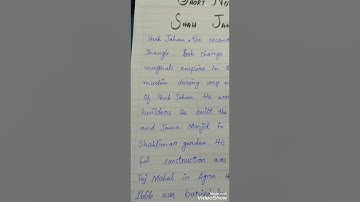 SHORT NO
SHAH JA
Shah Jahan, the second
Jhangir. Took charge
mughals empire in
muslim during very
Of Shah Jahan. He was
builders he built the
and Jama Masjid in
Shahlimar garden His
ful construction was
Taj Mahal in Agra H
1666 was buried
Made with
VideoShow